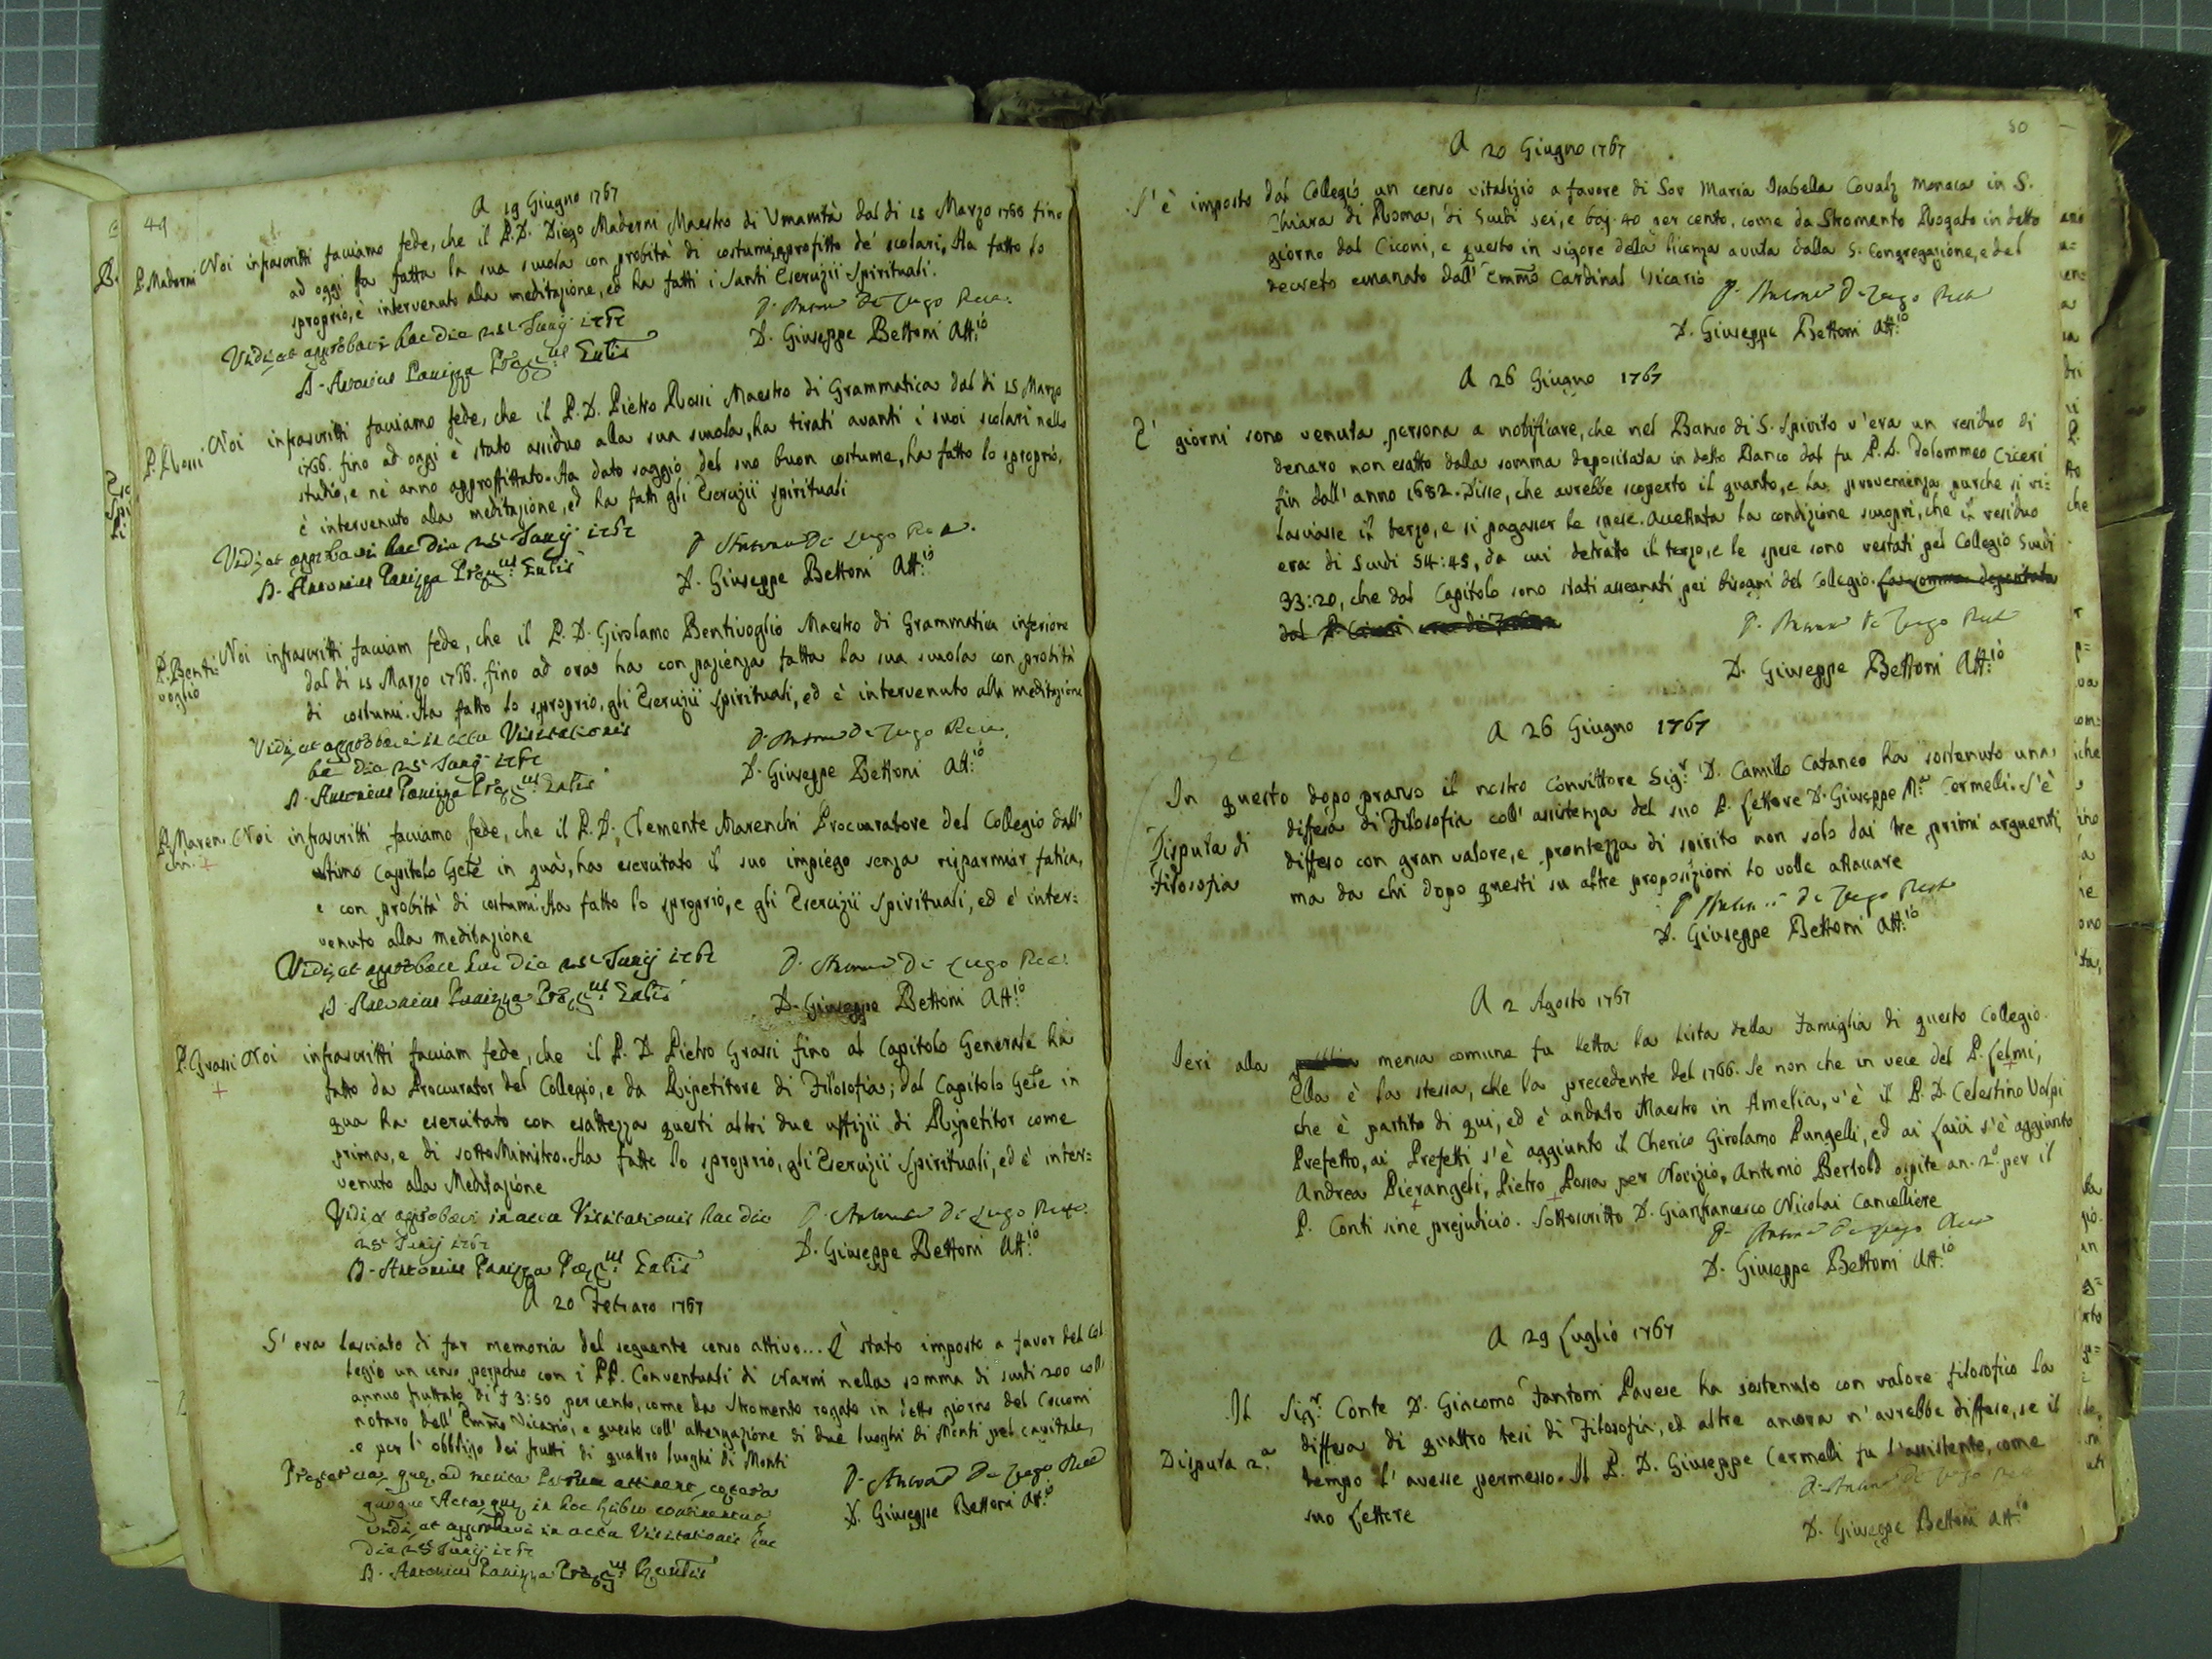 49
A 19 Giugno 1767
P. Maderni
Noi infrascritti facciamo fede, che il P. D. Diego Maderni Maestro di Umanità dal dì 15 Marzo 1766 fino
ad oggi ha fatta la sua scuola con probità di costumi, e profitto de' scolari, Ha fatto lo
sproprio, è intervenuto alla meditazione, ed ha fatti i Santi Esercizii Spirituali.
Vidi, et approbavi hac die 25 Junij 1767
D. Antonius Panizza Præp.us Gnlis
D. Antonio De Lugo Rett.
D. Giuseppe Bettoni Att.io
P. Rossi
Noi infrascritti facciamo fede, che il P. D. Pietro Rossi Maestro di Grammatica dal dì 15 Marzo
1766. fino ad oggi è stato assiduo alla sua scuola, ha tirati avanti i suoi scolari nello
studio, e nè anno approffittato. Ha dato saggio del suo buon costume, ha fatto lo sproprio,
è intervenuto alla meditazione, ed ha fatti gli Esercizii spirituali
Vidi, et approbavi hac die 25 Junij 1767
D. Antonius Panizza Præp.us Gnlis
D. Antonio De Lugo Rett.
D. Giuseppe Bettoni Att.io
P. Benti=
voglio
Noi infrascritti facciam fede, che il P. D. Girolamo Bentivoglio Maestro di Grammatica inferiore
dal dì 15 Marzo 1766. fino ad ora ha con pazienza fatta la sua scuola con probità
di costumi. Ha fatto lo sproprio, gli Esercizii spirituali, ed è intervenuto alla meditazione
Vidi, et approbavi in actu Visitationis
hac die 25 Junij 1767
D. Antonius Panizza Præp.us Gnlis
D. Antonio De Lugo Rett.
D. Giuseppe Bettoni Att.io
P. Maren-
chi. +
Noi infrascritti facciamo fede, che il P. D. Clemente Marenchi Proccuratore del Collegio dall'
ultimo Capitolo Gñle in quà, ha esercitato il suo impiego senza risparmiar fatica,
e con probità di costumi. Ha fatto lo sproprio, e gli Esercizii Spirituali, ed è inter=
venuto alla meditazione
Vidi, et approbavi hac die 25 Junij 1767
D. Antonius Panizza Præp.us Gnlis
D. Antonio De Lugo Rett.
D. Giuseppe Bettoni Att.io
P. Grassi
+
Noi infrascritti facciam fede, che il P. D. Pietro Grassi fino al Capitolo Generale ha
fatto da Proccurator del Collegio, e da Ripetitore di Filosofia; dal Capitolo Gñle in
qua ha esercitato con esattezza questi altri due uffizii di Ripetitor come
prima, e di sottoMinistro. Ha fatto lo sproprio, gli Esercizii Spirituali, ed è inter=
venuto alla Meditazione
Vidi, et approbavi in actu Visitationis hac die
25 Junij 1767
D. Antonius Panizza Præp.us Gnlis
D. Antonio De Lugo Rett.
D. Giuseppe Bettoni Att.io
A 20 Febraro 1767
S' era lasciato di far memoria del seguente censo attivo... È stato imposto a favor del Col
legio un censo perpetuo con i PP. Conventuali di Narni nella somma di scudi 200 coll'
annuo fruttato di 3:50 per cento, come da stromento rogato in detto giorno dal Cicconi
notaro dell' Emmo Vicario, e questo coll' attergazione di due luoghi di Monti pel capitale,
e per l' obbligo dei frutti di quattro luoghi di Monti
quoque Acta, quæ in hoc Libro continentur
vidi, et approbavi in actu Visitationis hac
die 25 Junij 1767
D. Antonius Panizza Præp.us Gnlis
D. Antonio De Lugo Rett.
D. Giuseppe Bettoni Att.io
50
A 20 Giugno 1767
S' è imposto dal Collegio un censo vitalizio a favore di Sor Maria Isabella Monaca in S.
Chiara di Roma, di scudi sei, e baj. 40 per cento, come da Stromento Rogato in detto
giorno dal Ciconi, e questo in vigore della licenza avuta dalla S. Congregazione, e del
decreto emanato dall' Emmo Cardinal Vicario
D. Antonio De Lugo Rett
D. Giuseppe Bettoni Att.io
A 26 Giugno 1767
E' giorni sono venuta persona a notificare, che nel Banco di S. Spirito v'era un residuo di
denaro non esatto dalla somma depositata in detto Banco dal fu P. D. Dolommeo Ciceri
fin dall' anno 1682. Disse, che avrebbe scoperto il quanto, e la provenienza purchè si ri=
lasciasse il terzo, e si pagasser le spese. Accettata la condizione scoprì, che il residuo
era di Scudi 54:45, da cui detratto il terzo, e le spese sono restati pel Collegio Scudi
33:20, che dal Capitolo sono stati assegnati pei bisogni del Collegio. La somma depositata
dal P. Ciceri era di
D. Antonio De Lugo Rett
D. Giuseppe Bettoni Att.io
A 26 Giugno 1767
Disputa di
Filosofia
In questo dopo pranso il nostro Convittore Sig.r D. Camillo Cataneo ha sostenuto una
diffesa di Filosofia coll' assistenza del suo P. Lettore D. Giuseppe M.a Cermelli. S'è
diffeso con gran valore, e prontezza di spirito non solo dai tre primi arguenti,
ma da chi dopo questi su altre proposizioni lo volle attaccare
D. Antonio De Lugo Rett
D. Giuseppe Bettoni Att.io
A 2 Agosto 1767
Ieri alla mensa comune fu letta la lista della Famiglia di questo Collegio.
Ella è la stessa, che la precedente del 1766. Se non che in vece del P. Lelmi,
che è partito di qui, ed è andato Maestro in Amelia, v'è il P. D. Celestino Volpi
Prefetto, ai Prefetti s'è aggiunto il Cherico Girolamo Pungelli, ed ai Laici s'è aggiunto
Andrea Pierangeli, Pietro Rossa per Novizio, Antonio Bertold ospite an. 2.o per il
P. Conti sine prejudicio. Sottoscritto D. Gianfrancesco Nicolai Cancelliere
D. Antonio De Lugo Rett
D. Giuseppe Bettoni Att.io
A 29 Luglio 1767
Disputa 2.a
Il Sig.r Conte D. Giacomo Fantoni Pavese ha sostenuto con valore filosofico la
diffesa di quattro tesi di Filosofia, ed altre ancora n'avrebbe diffese, se il
tempo l' avesse permesso. Il P. D. Giuseppe Cermelli fu l'assistente, come
suo Lettore
D. Antonio De Lugo Rett
D. Giuseppe Bettoni Att.io